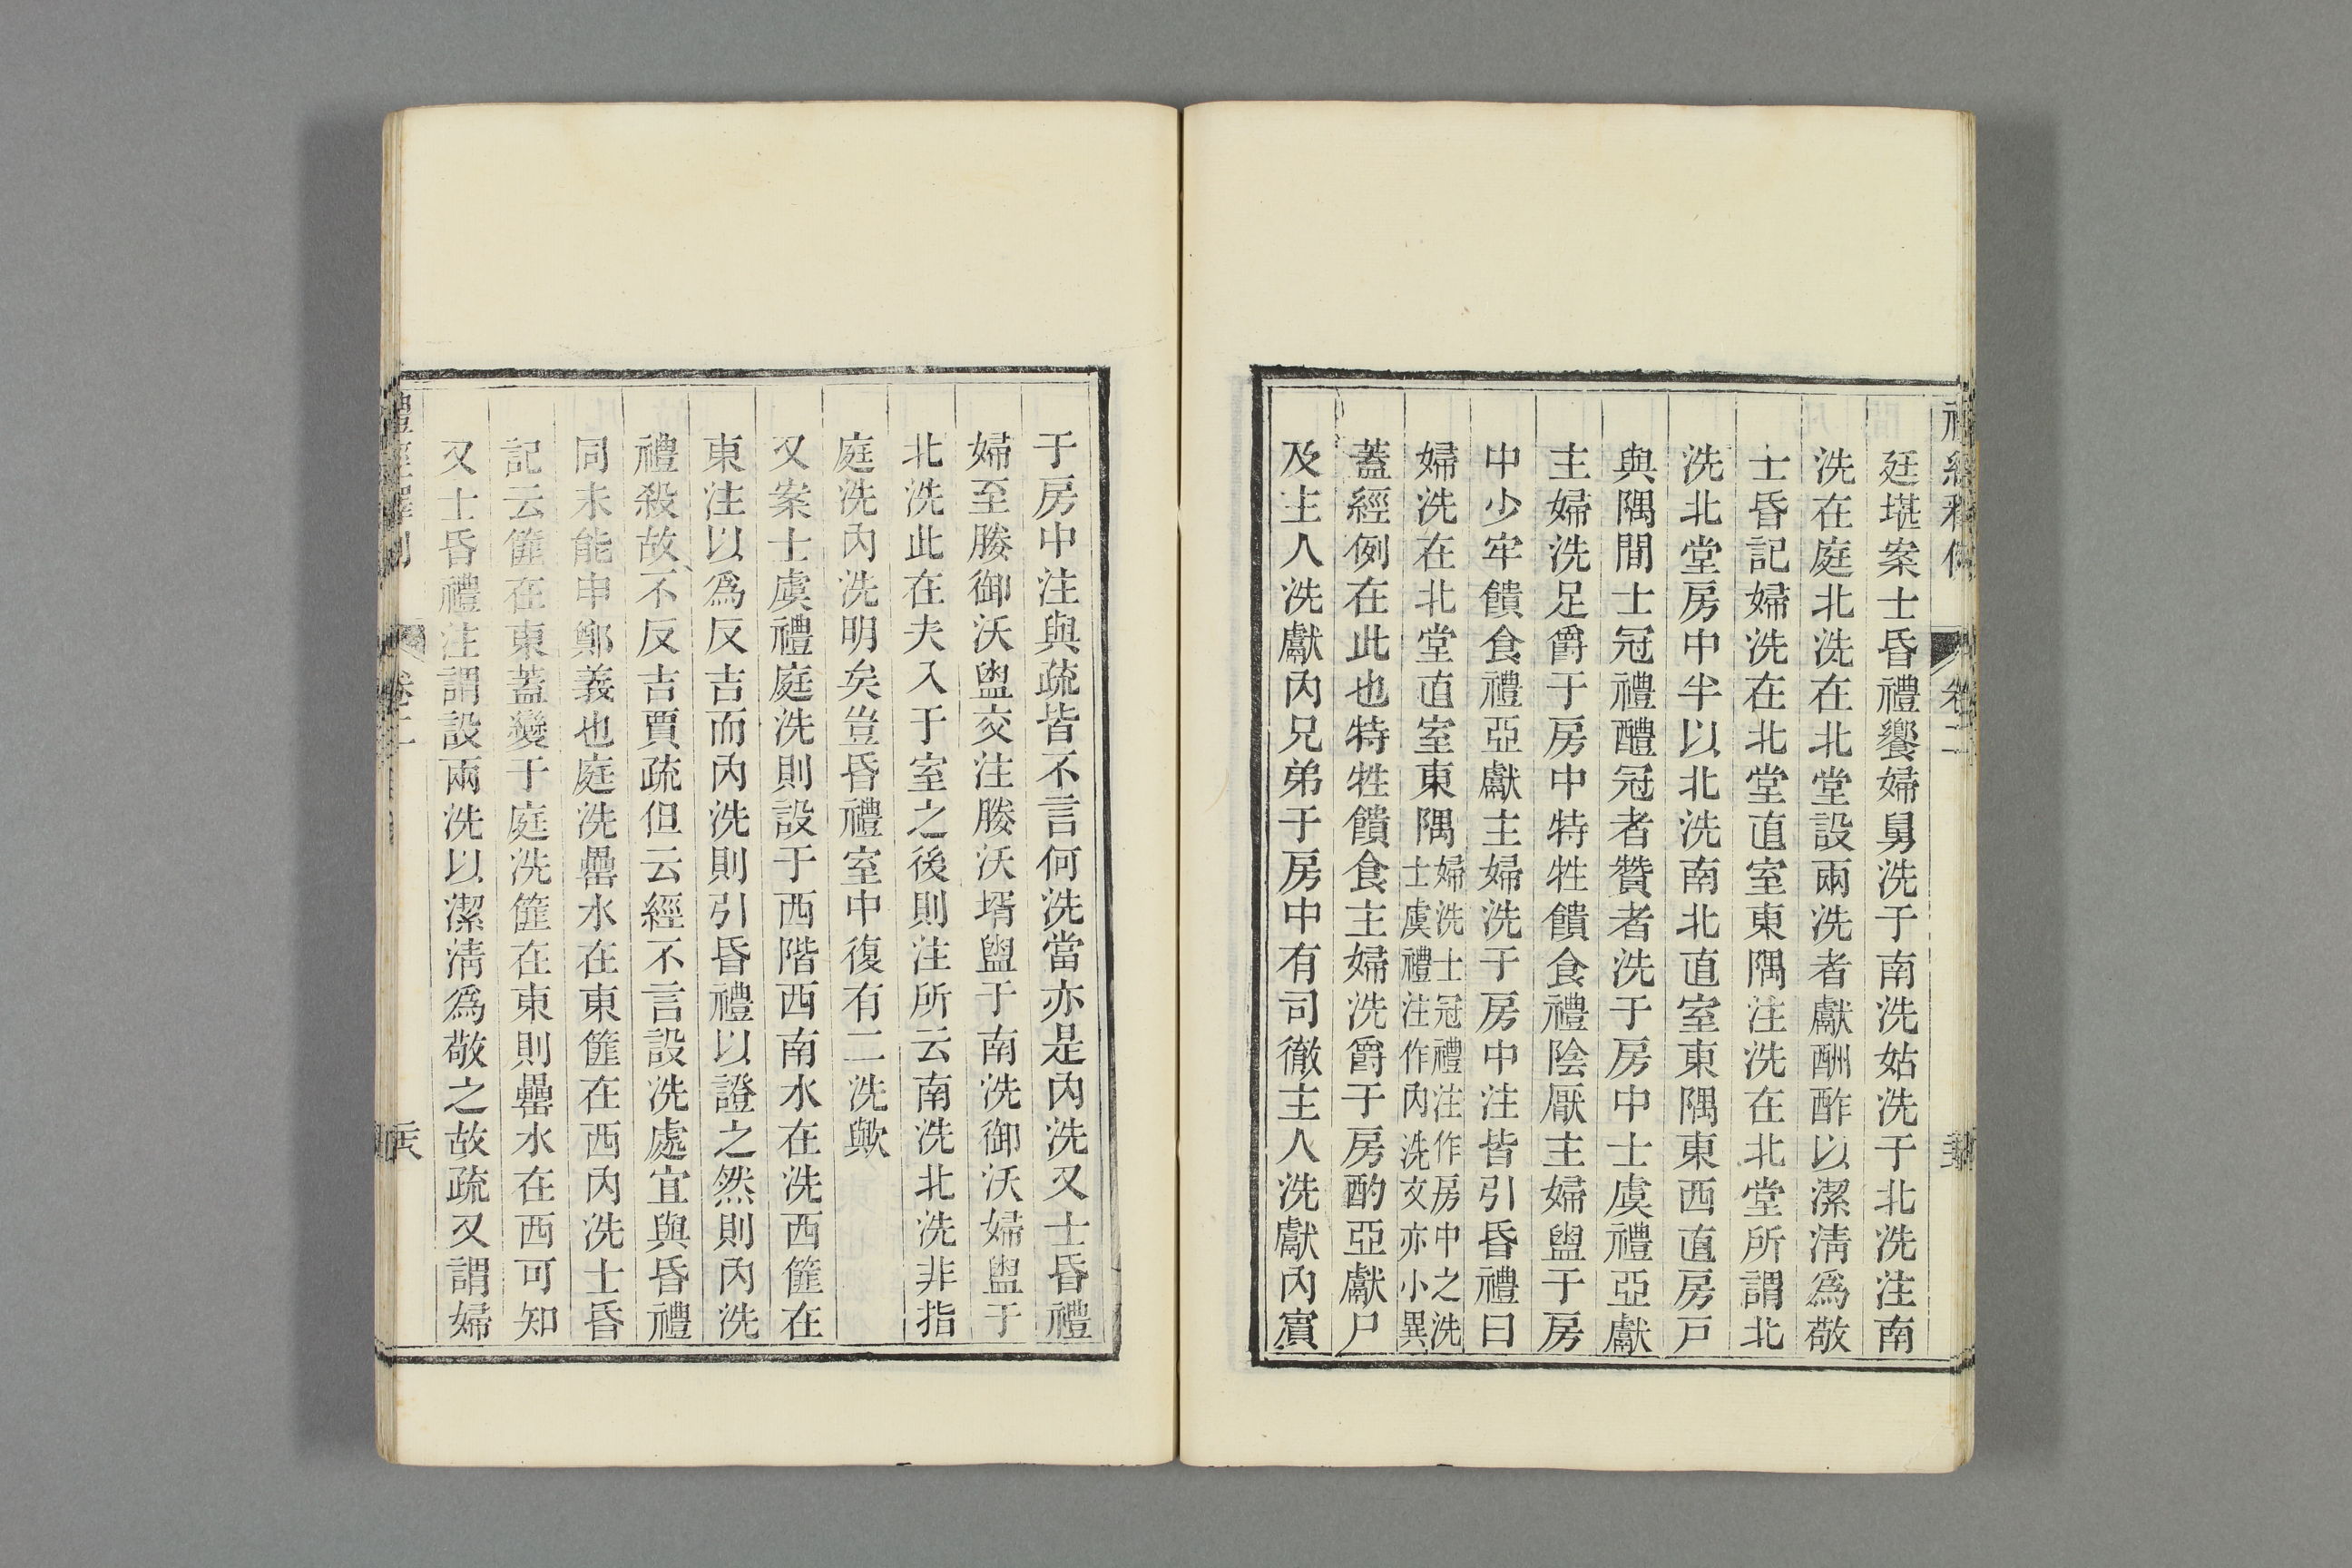 廷堪案士昏禮饗婦舅洗于南洗姑洗于北洗注南
洗在庭北洗在北堂設兩洗者獻酬酢以潔淸爲敬
士昏記婦洗在北堂直室東隅注洗在北堂所謂北
洗北堂房中半以北洗南北直室東隅東西直房戸
與隅間士冠禮醴冠者贊者洗于房中士虞禮亞獻
主婦洗足爵于房中特牲饋食禮陰厭主婦盥于房
中少牢饋食禮亞獻主婦洗于房中注皆引昏禮曰
婦洗在北堂直室東隅婦洗士冠禮注作房中之洗士虞禮注作內洗文亦小異
蓋經例在此也特牲饋食主婦洗爵于房酌亞獻尸
及主人洗獻內兄弟于房中有司徹主人洗獻內賓
于房中注與疏皆不言何洗當亦是內洗又士昏禮
婦至媵御沃盥交注媵沃壻盥于南洗御沃婦盥于
北洗此在夫入于室之後則注所云南洗北洗非指
庭洗內洗明矣豈昏禮室中復有二洗歟
又案士虞禮庭洗則設于西階西南水在洗西篚在
東注以爲反吉而內洗則引昏禮以證之然則內洗
禮殺故不反吉賈疏但云經不言設洗處宜與昏禮
同未能申鄭義也庭洗罍水在東篚在西內洗士昏
記云篚在東蓋變于庭洗篚在東則罍水在西可知
又士昏禮注謂設兩洗以潔淸爲敬之故疏又謂婦
卷二